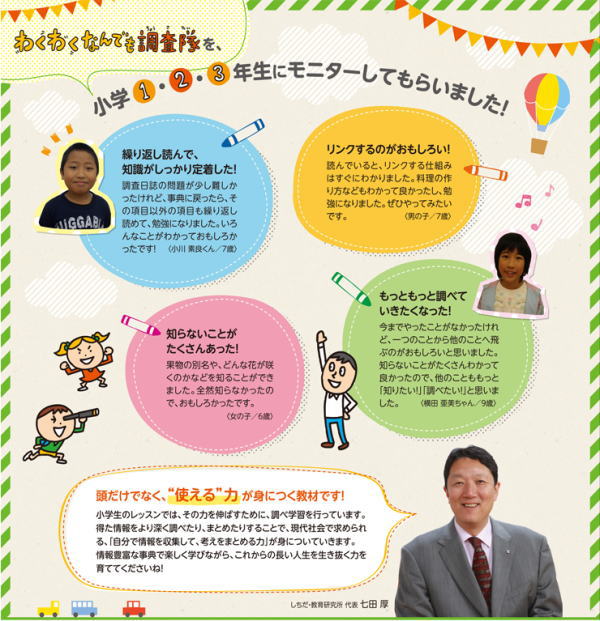 わくわくなんでも調査隊を、
小学1・2・3年生にモニターしてもらいました!
繰り返し読んで、
知識がしっかり定着した!
調査日誌の問題が少し難しか
ったけれど、事典に戻ったら、そ
の項目以外の項目も繰り返し
読めて、勉強になりました。いろ
んなことがわかっておもしろか
ったです! 〈小川 素良くん/7歳〉
リンクするのがおもしろい!
読んでいると、リンクする仕組み
はすぐにわかりました。料理の作
り方などもわかって良かったし、勉
強になりました。ぜひやってみたい
です。 〈男の子/7歳〉
知らないことが
たくさんあった!
果物の別名や、どんな花が咲
くのかなどを知ることができ
ました。全然知らなかったの
で、おもしろかったです。
〈女の子/6歳〉
もっともっと調べて
いきたくなった!
今までやったことがなかったけれ
ど、一つのことから他のことへ飛
ぶのがおもしろいと思いました。
知らないことがたくさんわかって
良かったので、他のことももっと
「知りたい!」「調べたい!」と思いま
した。 〈横田 亜美ちゃん/9歳〉
頭だけでなく、“使える”力が身につく教材です!
小学生のレッスンでは、その力を伸ばすために、調べ学習を行っています。
得た情報をより深く調べたり、まとめたりすることで、現代社会で求められ
る、「自分で情報を収集して、考えをまとめる力」が身についていきます。
情報豊富な事典で楽しく学びながら、これからの長い人生を生き抜く力を
育ててくださいね!
しちだ・教育研究所 代表 七田 厚